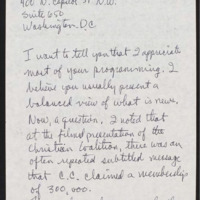 400 N. Capitol St N.W.
Suite 650
Washington, D.C
I want to tell you that I appreciate
most of your programming. I
believe you usually present a
balanced view of what is news.
Now, a question, I noted that
at the filmed presentation of the
Christian Coalition, there was an
often repeated subtitled message
that C.C. claimed a membership
of 300,000.